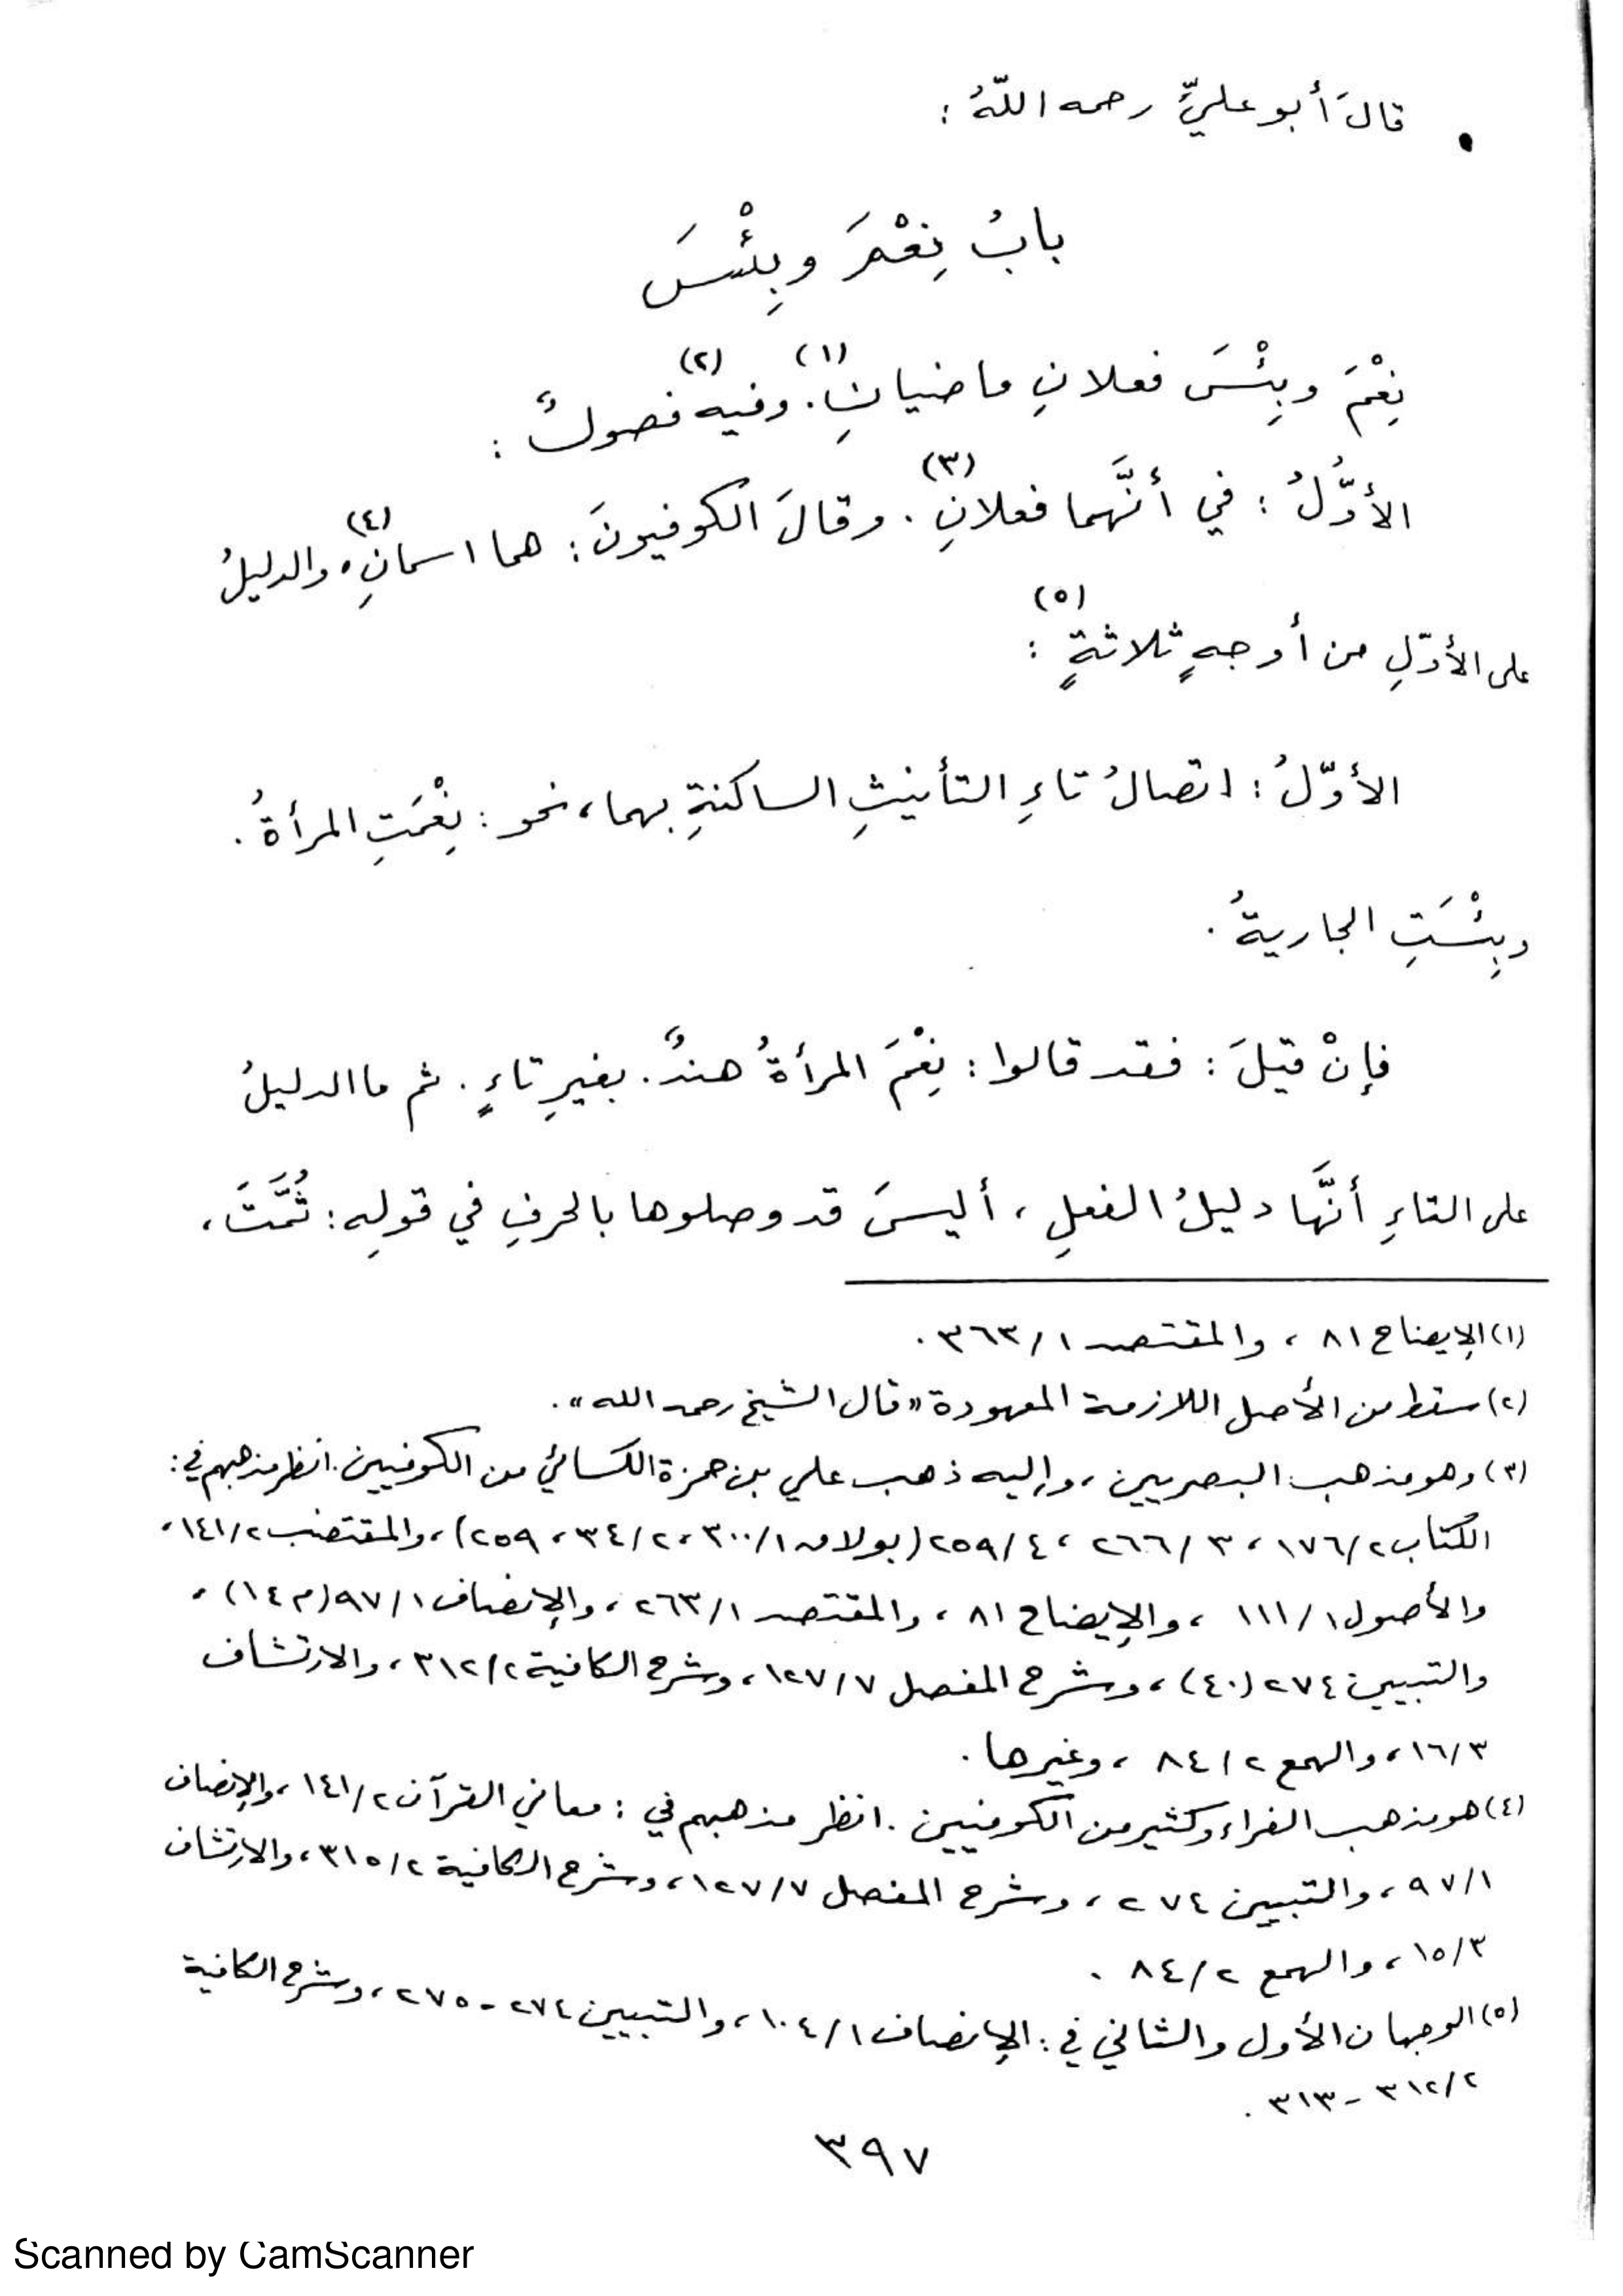 • قالَ أبو عليٍّ رحمه اللّهُ :
بابُ نِعْمَ وبِئْسَ
نِعْمَ وبِئْسَ فعلانِ ماضيانِ(١). وفيه(٢) فصولٌ :
الأوّلُ : في أنَّهما فعلانِ(٣). وقالَ الكوفيونَ : هما اسمانِ(٤). والدليلُ
على الأوّلِ من أوجهٍ ثلاثةٍ(٥) :
الأوّلُ : اتصالُ تاءِ التأنيثِ الساكنةِ بهما، نحو : نِعْمَتِ المرأةُ .
وبِئْسَتِ الجاريةُ .
فإنْ قيلَ : فقد قالوا : نِعْمَ المرأةُ هندٌ. بغيرِ تاءٍ . ثم ما الدليلُ
على التاءِ أنَّها دليلُ الفعلِ ، أليسَ قد وصلوها بالحرفِ في قولِه : ثُمَّتَ ،
(١) الإيضاح ٨١ ، والمقتصد ٣٦٣/١ .
(٢) سقط من الأصل اللازمة المعهودة «قال الشيخ رحمه الله» .
(٣) وهو مذهب البصريين ، وإليه ذهب علي بن حمزة الكسائي من الكوفيين. انظر مذهبهم في :
الكتاب ١٧٦/٢ ، ٢٦٦/٣ ، ٢٥٩/٤ (بولاق ٣٠٠/١ ، ٣٤/٢ ، ٢٥٩) ، والمقتضب ١٤١/٢ ،
والأصول ١١١/١ ، والإيضاح ٨١ ، والمقتصد ٢٦٣/١ ، والإنصاف ٩٧/١ (م ١٤) ،
والتبيين ٢٧٤ (٤٠) ، وشرح المفصل ١٢٧/٧ ، وشرح الكافية ٣١٢/٢ ، والارتشاف
١٦/٣ ، والهمع ٨٤/٢ ، وغيرها .
(٤) هو مذهب الفراء وكثير من الكوفيين . انظر مذهبهم في : معاني القرآن ١٤١/٢ ، والإنصاف
٩٧/١ ، والتبيين ٢٧٤ ، وشرح المفصل ١٢٧/٧ ، وشرح الكافية ٣١٥/٢ ، والارتشاف
١٥/٣ ، والهمع ٨٤/٢ .
(٥) الوجهان الأول والثاني في : الإنصاف ١٠٤/١ ، والتبيين ٢٧٤ - ٢٧٥ ، وشرح الكافية
٣١٢/٢ - ٣١٣ .
٣٩٧
Scanned by CamScanner